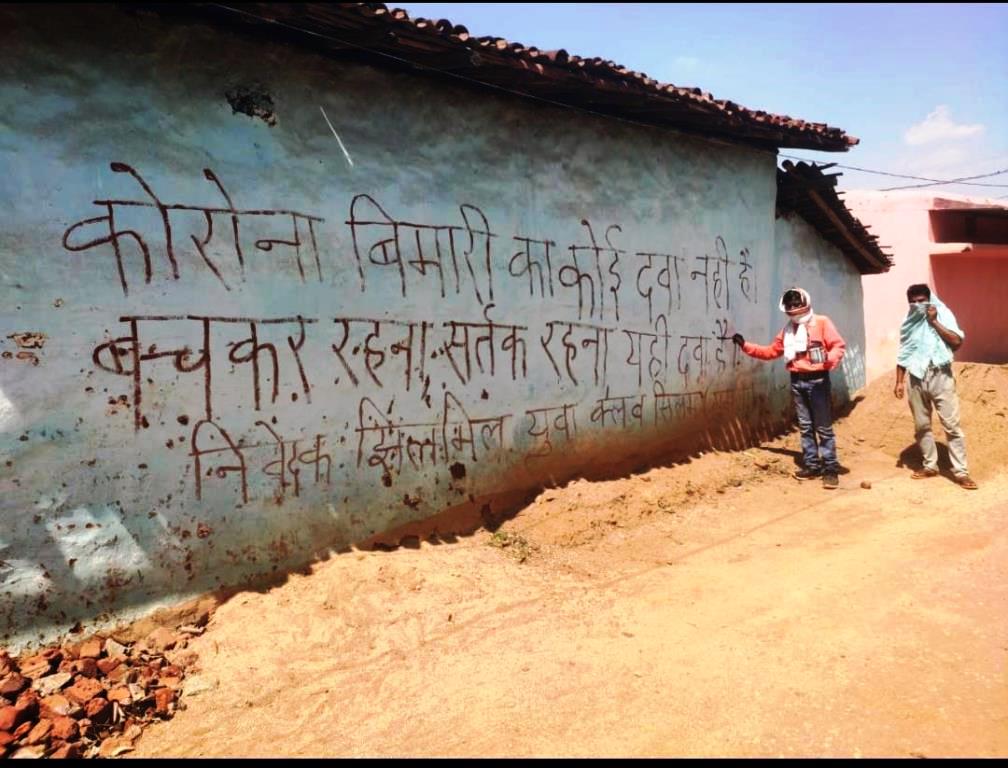 कोरोना बिमारी का कोई दवा नही है
बच कर रहना, सर्तक रहना यही दवा है
निवेदक झिलमिल युवा क्लव